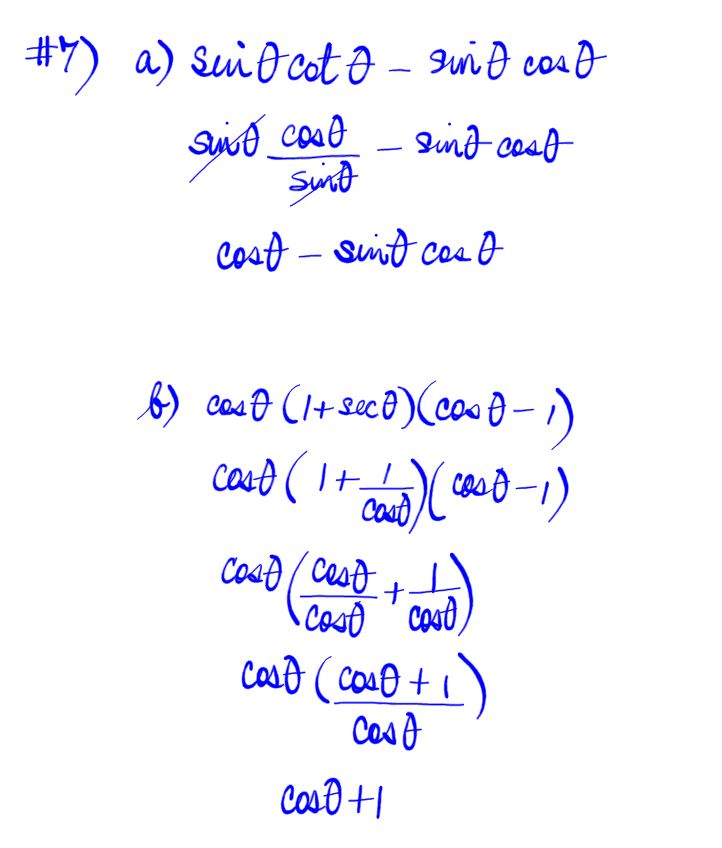 #7) a) sinθ cot θ - sin θ cos θ
sinθ cosθ/sinθ - sinθ cosθ
cosθ - sinθ cos θ
b) cosθ (1+secθ)(cosθ-1)
cosθ (1+1/cosθ)(cosθ-1)
cosθ (cosθ/cosθ + 1/cosθ)
cosθ (cosθ+1/cosθ)
cosθ+1